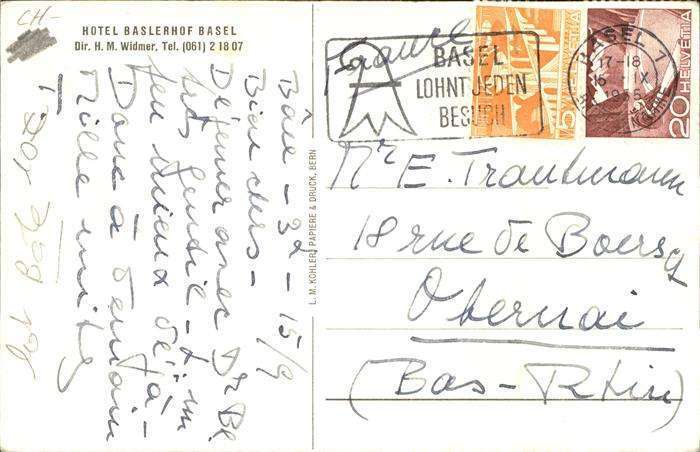 CH-
HOTEL BASLERHOF BASEL
Dir. H. M. Widmer, Tel. (061) 2 18 07
Bâle - 3h - 15/9
Bien chers -
Déjeuner avec Dr Be
très gentil -
un
peu mieux déjà -
Dona à demain
Mille
L. M. KOHLER, PAPIERE & DRUCK, BERN
France
BASEL
LOHNT JEDEN
BESUCH
BASEL 1
17-18
IX
5 HELVETIA
20 HELVETIA
Mr E. Trautmann
18 rue de Boersq
Obernai
(Bas-Rhin)